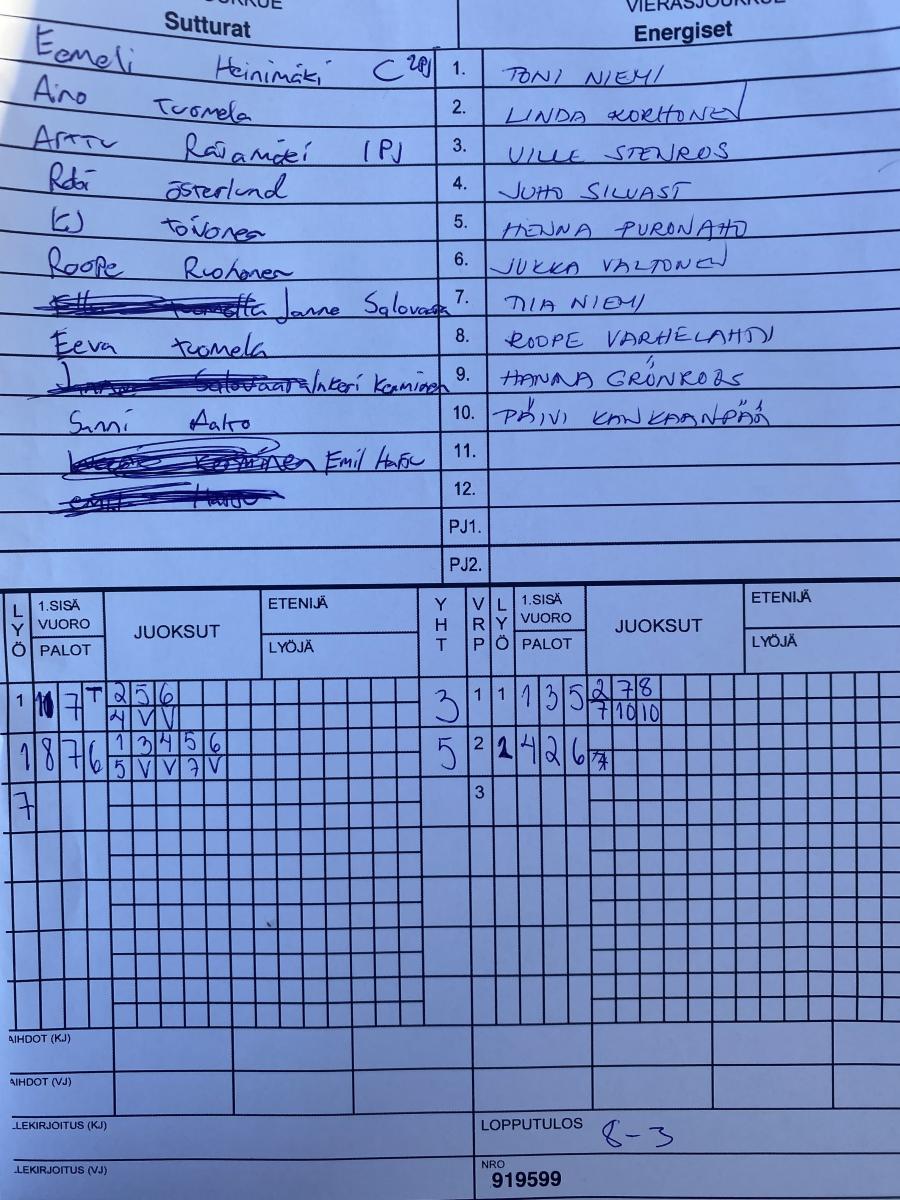 VIERASJOUKKUE
Sutturat Energiset
Eemeli Heinimäki C 2PJ 1. TONI NIEMI
Aino Tuomela 2. LINDA KORHONEN
Arttu Räsamäki 1PJ 3. VILLE STENROS
österlund 4. JUHO SILVAST
KJ Toivonen 5. HENNA PURONAHO
Roope Ruohonen 6. JUKKA VALTONEN
Janne Salovaara 7. TIIA NIEMI
Eeva Tuomela 8. ROOPE VARHELAHTI
Inkeri Kerminen 9. HANNA GRÖNROOS
Sanni Aalto 10. PÄIVI KANKAANPÄÄ
Emil Harju 11.
12.
PJ1.
PJ2.
LYÖ 1.SISÄ VUORO PALOT JUOKSUT ETENIJÄ LYÖJÄ YHT VRP LYÖ 1.SISÄ VUORO PALOT JUOKSUT ETENIJÄ LYÖJÄ
1 7 T 2 5 6 3 1 1 1 3 5 2 7 8
4 V V 7 10 10
1 8 7 6 1 3 4 5 6 5 2 4 2 6
5 V V 7 V
7 3
AIHDOT (KJ)
AIHDOT (VJ)
LEKIRJOITUS (KJ) LOPPUTULOS 8-3
LEKIRJOITUS (VJ) NRO 919599